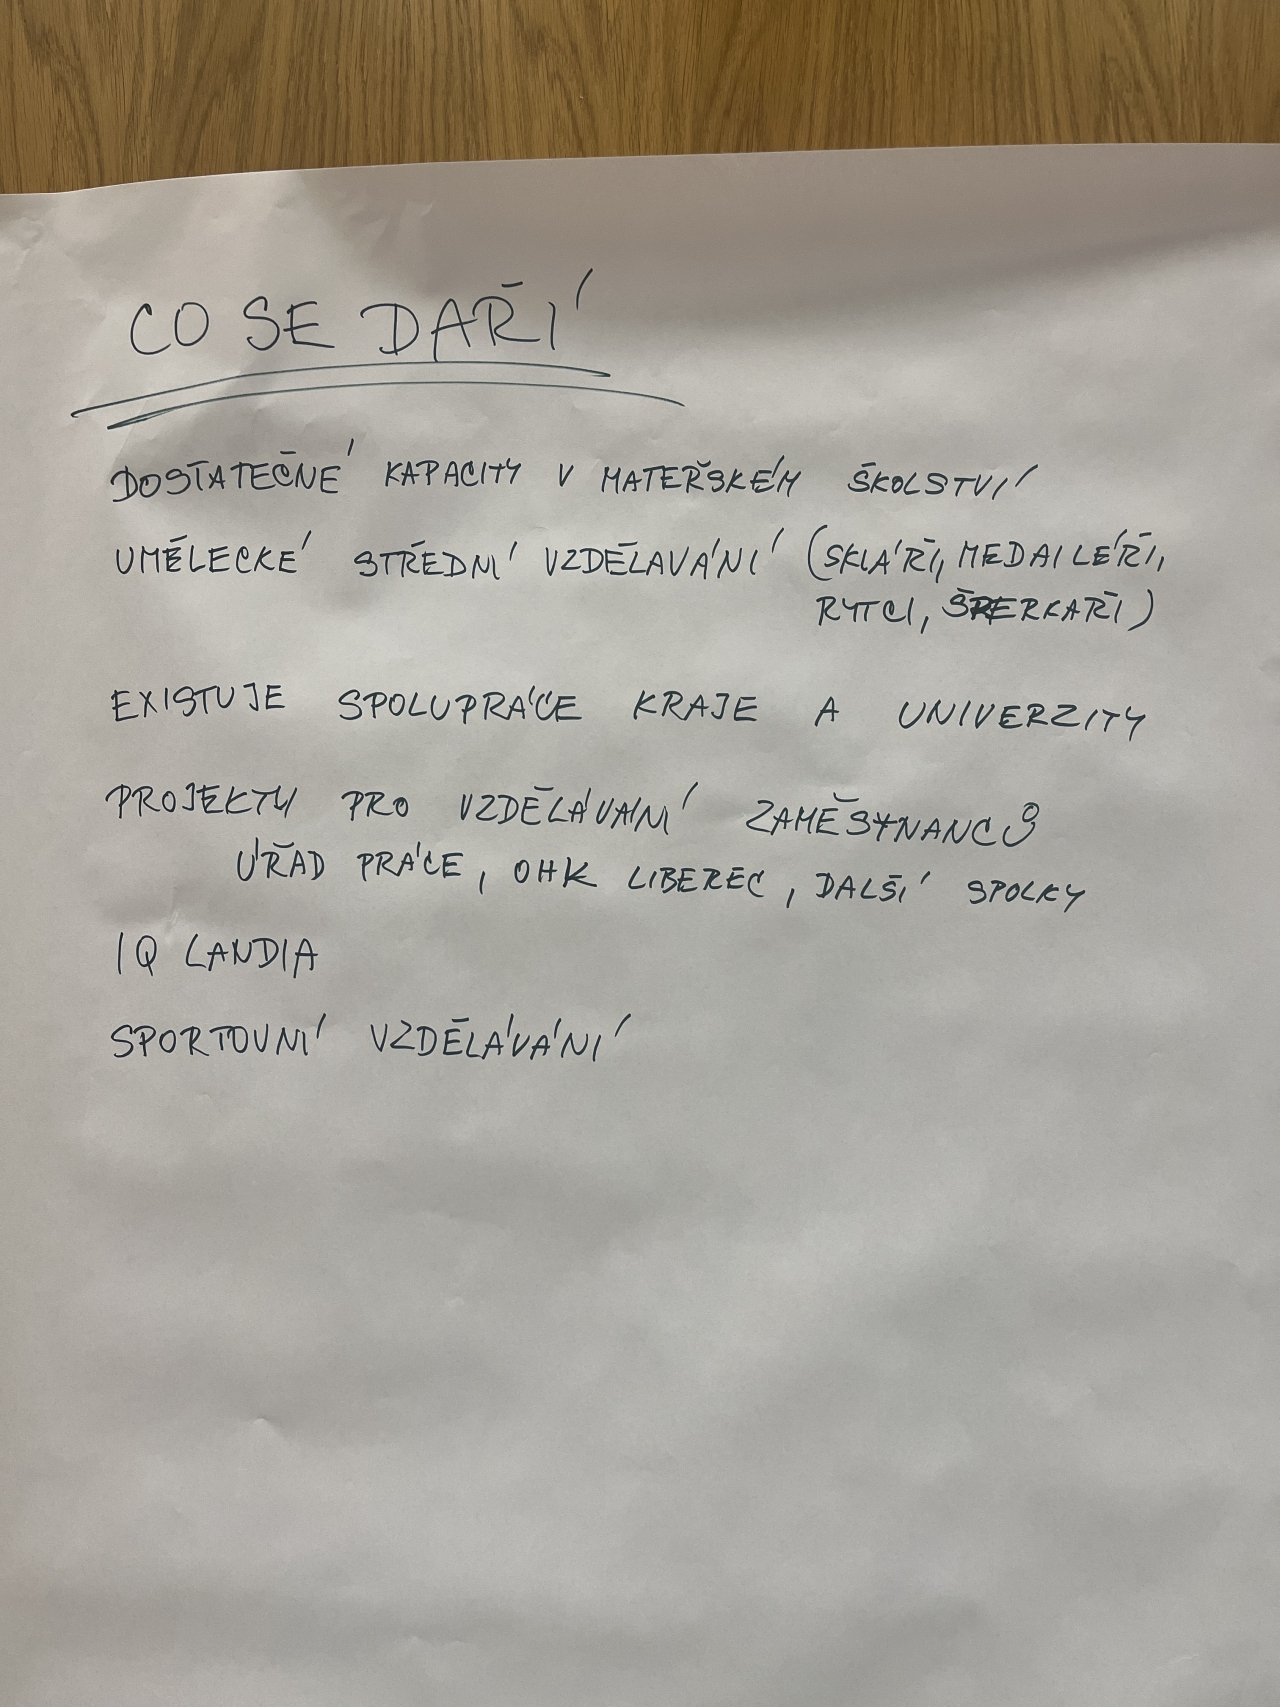 CO SE DAŘÍ
DOSTATEČNÉ KAPACITY V MATEŘSKÉM ŠKOLSTVÍ
UMĚLECKÉ STŘEDNÍ VZDĚLAVÁNÍ (SKLÁŘI, MEDAILÉŘI,
RYTCI, ŠPERKAŘI)
EXISTUJE SPOLUPRÁCE KRAJE A UNIVERZITY
PROJEKTY PRO VZDĚLÁVÁNÍ ZAMĚSTNANCŮ
ÚŘAD PRÁCE, OHK LIBEREC, DALŠÍ SPOLKY
IQ LANDIA
SPORTOVNÍ VZDĚLÁVÁNÍ